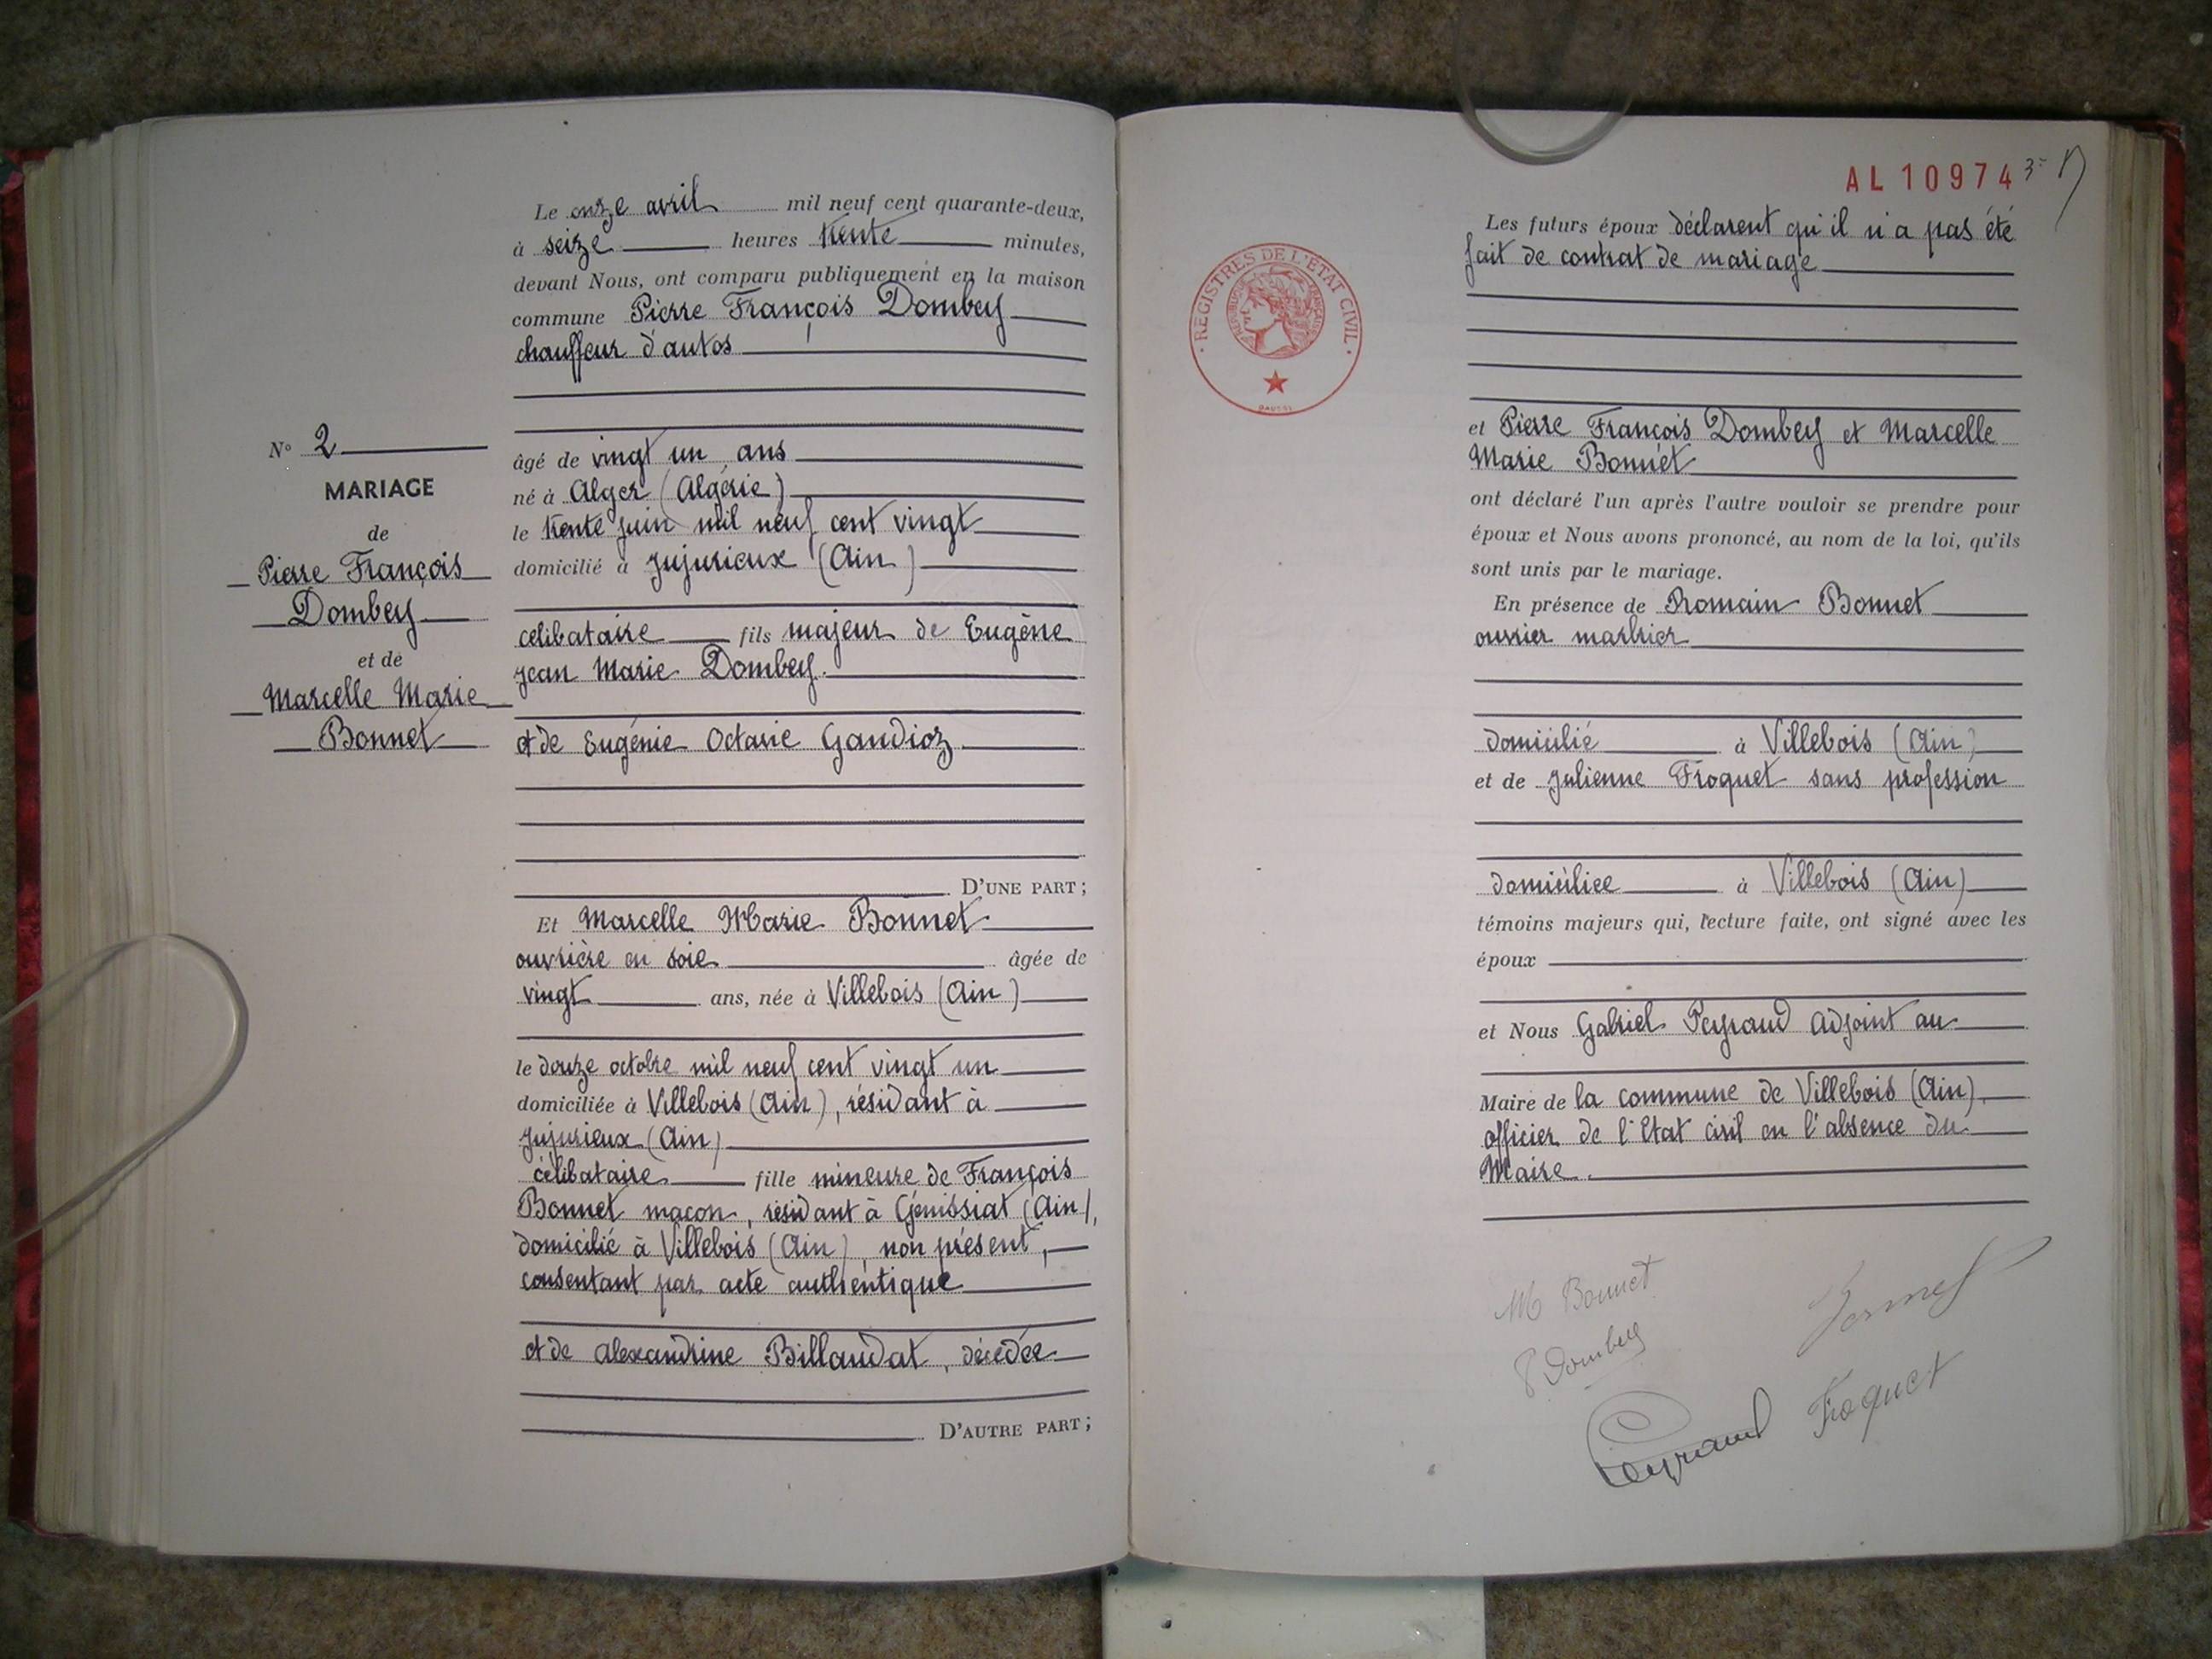 Le onze avril mil neuf cent quarante-deux,
à seize heures trente minutes,
devant Nous, ont comparu publiquement en la maison
commune Pierre François Dombey
chauffeur d'autos
N° 2
MARIAGE
de
Pierre François
Dombey
et de
Marcelle Marie
Bonnet
âgé de vingt un ans
né à Alger (Algérie)
le trente juin mil neuf cent vingt
domicilié à Jujurieux (Ain)
célibataire fils majeur de Eugène
Jean Marie Dombey
et de Eugénie Octavie Gandioz
D'UNE PART;
Et Marcelle Marie Bonnet
ouvrière en soie âgée de
vingt ans, née à Villebois (Ain)
le douze octobre mil neuf cent vingt un
domiciliée à Villebois (Ain), résidant à
Jujurieux (Ain)
célibataire fille mineure de François
Bonnet maçon, résidant à Génissiat (Ain),
domicilié à Villebois (Ain), non présent,
consentant par acte authentique
et de Alexandrine Billaudat, décédée
D'AUTRE PART;
AL 10974
REGISTRES DE L'ÉTAT CIVIL
RÉPUBLIQUE FRANÇAISE
Les futurs époux déclarent qu'il n'a pas été
fait de contrat de mariage
et Pierre François Dombey et Marcelle
Marie Bonnet
ont déclaré l'un après l'autre vouloir se prendre pour
époux et Nous avons prononcé, au nom de la loi, qu'ils
sont unis par le mariage.
En présence de Romain Bonnet
ouvrier marbrier
domicilié à Villebois (Ain)
et de Julienne Froquet sans profession
domiciliée à Villebois (Ain)
témoins majeurs qui, lecture faite, ont signé avec les
époux
et Nous Gabriel Peyraud Adjoint au
Maire de la commune de Villebois (Ain)
officier de l'Etat civil en l'absence du
Maire.
M Bonnet
Bonnet
P Dombey
Froquet
Peyraud